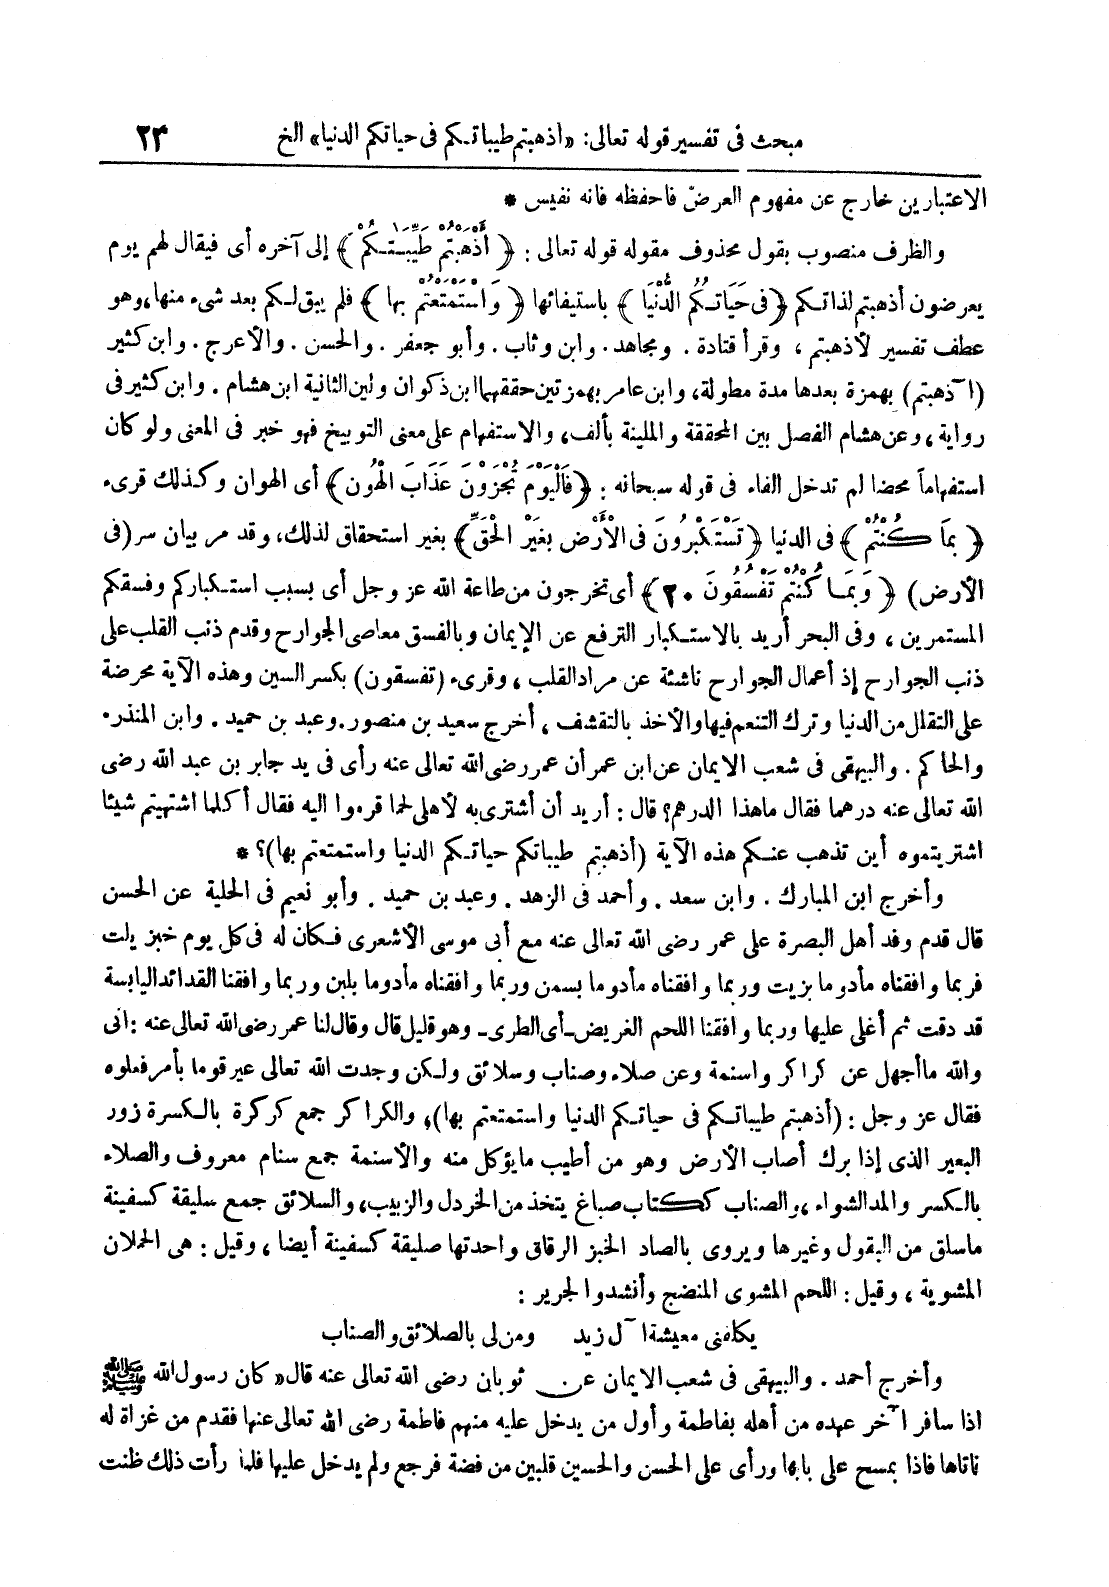 مبحث فى تفسير قوله تعالى: «أذهبتم طيباتـكم فى حياتكم الدنيا» الخ ٢٣
الاعتبارين خارج عن مفهوم العرض فاحفظه فانه نفيس *
والظرف منصوب بقول محذوف مقوله قوله تعالى : ﴿ أَذْهَبْتُمْ طَيِّبَـٰتـكُمْ ﴾ إلى آخره أى فيقال لهم يوم
يعرضون أذهبتم لذاتـكم ﴿ فى حَيَاتـكُمُ الدُّنْيَا ﴾ باستيفائها ﴿ وَاسْتَمْتَعْتُمْ بها ﴾ فلم يبق لـكم بعد شىء منها، وهو
عطف تفسير لأذهبتم ، وقرأ قتادة . ومجاهد . وابن وثاب . وأبو جعفر . والحسن . والأعرج . وابن كثير
(آذهبتم) بهمزة بعدها مدة مطولة، وابن عامر بهمزتين حققهما ابن ذكوان ولين الثانية ابن هشام . وابن كثير فى
رواية ، وعن هشام الفصل بين المحققة والملينة بألف، والاستفهام على معنى التوبيخ فهو خبر فى المعنى ولو كان
استفهاماً محضا لم تدخل الفاء فى قوله سبحانه : ﴿ فَالْيَوْمَ تُجْزَوْنَ عَذَابَ الْهُون ﴾ أى الهوان وكـذلك قرىء
﴿ بمَا كُنْتُمْ ﴾ فى الدنيا ﴿ تَسْتَكْبرُونَ فى الْأَرْض بغَيْر الْحَقِّ ﴾ بغير استحقاق لذلك، وقد مر بيان سر (فى
الأرض) ﴿ وَبمَـا كُنْتُمْ تَفْسُقُونَ ٢٠ ﴾ أى تخرجون من طاعة الله عز وجل أى بسبب استـكباركم وفسقكم
المستمرين ، وفى البحر أريد بالاستـكبار الترفع عن الإيمان وبالفسق معاصى الجوارح وقدم ذنب القلب على
ذنب الجوارح إذ أعمال الجوارح ناشئة عن مراد القلب ، وقرىء (تفسقون) بكسر السين وهذه الآية محرضة
على التقلل من الدنيا وترك التنعم فيها والأخذ بالتقشف ، أخرج سعيد بن منصور. وعبد بن حميد . وابن المنذر.
والحاكم . والبيهقى فى شعب الايمان عن ابن عمر أن عمر رضى الله تعالى عنه رأى فى يد جابر بن عبد الله رضى
الله تعالى عنه درهما فقال ماهذا الدرهم؟ قال : أريد أن أشترى به لأهلى لحما قرموا اليه فقال أكلما اشتهيتم شيئا
اشتريتموه أين تذهب عنـكم هذه الآية (أذهبتم طيباتكم حياتـكم الدنيا واستمتعتم بها)؟ *
وأخرج ابن المبارك . وابن سعد . وأحمد فى الزهد . وعبد بن حميد . وأبو نعيم فى الحلية عن الحسن
قال قدم وفد أهل البصرة على عمر رضى الله تعالى عنه مع أبى موسى الأشعرى فـكان له فى كل يوم خبز يلت
فربما وافقناه مأدوما بزيت وربما وافقناه مأدوما بسمن وربما وافقناه مأدوما بلبن وربما وافقنا القدائد اليابسة
قد دقت ثم أغلى عليها وربما وافقنا اللحم الغريض ـ أى الطرى ـ وهو قليل قال وقال لنا عمر رضى الله تعالى عنه : انى
والله ماأجهل عن كراكر واسنمة وعن صلاء وصناب وسلائق ولـكن وجدت الله تعالى عير قوما بأمر فعلوه
فقال عز وجل : (أذهبتم طيباتـكم فى حياتـكم الدنيا واستمتعتم بها)، والكراكر جمع كركرة بالـكسرة زور
البعير الذى إذا برك أصاب الأرض وهو من أطيب مايؤكل منه والأسنمة جمع سنام معروف والصلاء
بالـكسر والمد الشواء ، والصناب ككتاب صباغ يتخذ من الخردل والزبيب، والسلائق جمع سليقة كسفينة
ماسلق من البقول وغيرها ويروى بالصاد الخبز الرقاق واحدتها صليقة كسفينة أيضا ، وقيل : هى الحملان
المشوية ، وقيل : اللحم المشوى المنضج وأنشدوا لجرير :
يكلفنى معيشة آل زيد ومن لى بالصلائق والصناب
وأخرج أحمد . والبيهقى فى شعب الايمان عن ثوبان رضى الله تعالى عنه قال « كان رسول الله ﷺ
اذا سافر آخر عهده من أهله بفاطمة وأول من يدخل عليه منهم فاطمة رضى الله تعالى عنها فقدم من غزاة له
فاتاها فاذا بمسح على بابها ورأى على الحسن والحسين قلبين من فضة فرجع ولم يدخل عليها فلما رأت ذلك ظنت